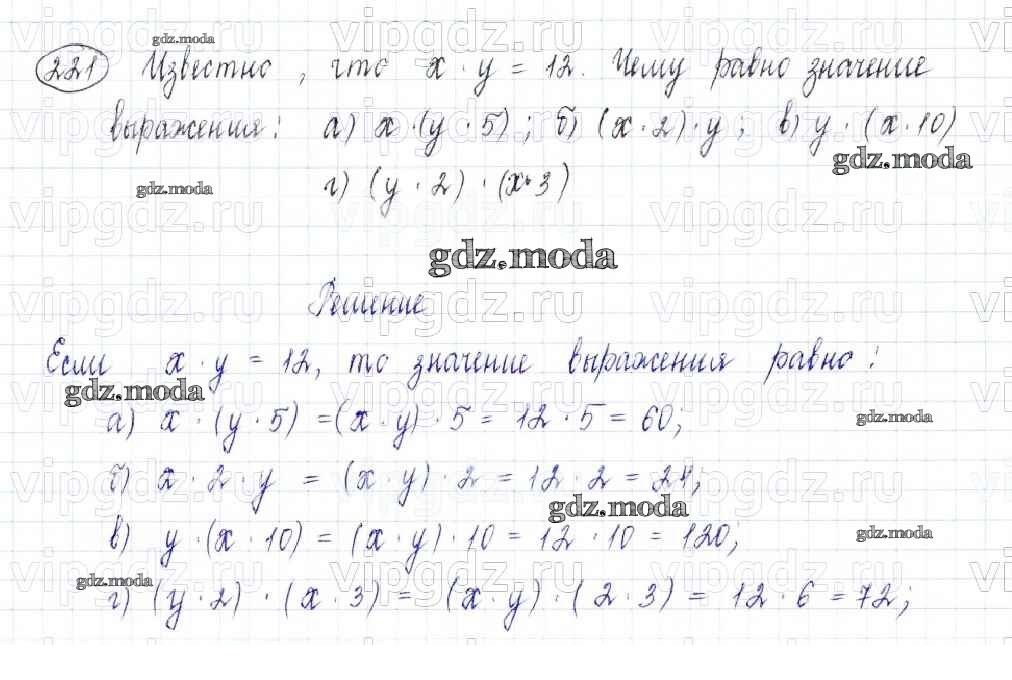 221 Известно, что x · y = 12. Чему равно значение
выражения: а) x · (y · 5); б) (x · 2) · y; в) y · (x · 10)
г) (y · 2) · (x · 3)
Решение
Если x · y = 12, то значение выражения равно:
а) x · (y · 5) = (x · y) · 5 = 12 · 5 = 60;
б) x · 2 · y = (x · y) · 2 = 12 · 2 = 24;
в) y · (x · 10) = (x · y) · 10 = 12 · 10 = 120;
г) (y · 2) · (x · 3) = (x · y) · (2 · 3) = 12 · 6 = 72;
gdz.moda
vipgdz.ru